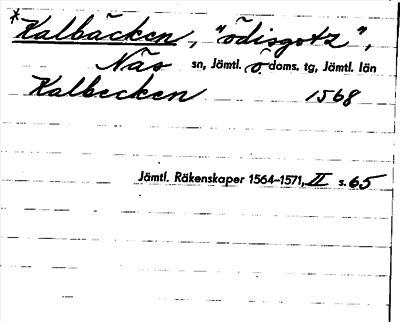 *Kalbäcken, "ödisgotz",
Näs sn, Jämtl. ö doms. tg, Jämtl. län
Kalbecken 1568
Jämtl. Räkenskaper 1564–1571, II s. 65